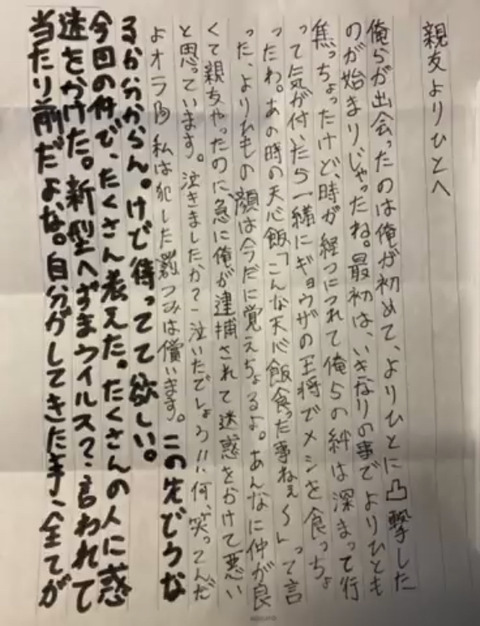 親友よりひとへ
俺らが出会ったのは俺が初めて、よりひとに凸撃した
のが始まりじゃったね。最初は、いきなりの事でよりひとも
焦っちょったけど、時が経つにつれて俺らの絆は深まって行
って気が付いたら一緒にギョウザの王将でメシを食っちょ
ったわ。あの時の天心飯「こんな天心飯食った事ねぇ〜」って言
った、よりひもの顔は今だに覚えちょるよ。あんなに仲が良
くて親友やったのに急に俺が逮捕されて迷惑をかけて悪い
と思っています。泣きましたか?泣いたでしょう!!何、笑ってんだ
よオラ 私は犯した罪つみは償います。この先どうな
るか分からん。けど待ってて欲しい。
今回の件で、たくさん考えた。たくさんの人に惑
迷をかけた。新型へずまウイルス?言われて
当たり前だよな。自分がしてきた事、全てが